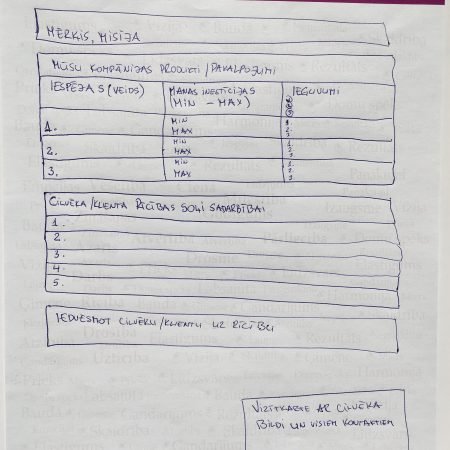 MĒRĶIS, MISIJA
MŪSU KOMPĀNIJAS PRODUKTI/PAKALPOJUMI
IESPĒJAS (VEIDS)
MANAS INESTĪCIJAS
(MIN - MAX)
IEGUVUMI
1.
MIN
MAX
1.
2.
3
2.
MIN
MAX
1
2
3
3.
MIN
MAX
1
2
3
CILVĒKA/KLIENTA RĪCĪBAS SOĻI SADARBĪBAI
1.
2.
3.
4.
5.
IEDVESMOT CILVĒKU/KLIENTU UZ RĪCĪBU
VIZĪTKARTE AR CILVĒKA
BILDI UN VISIEM KONTAKTIEM